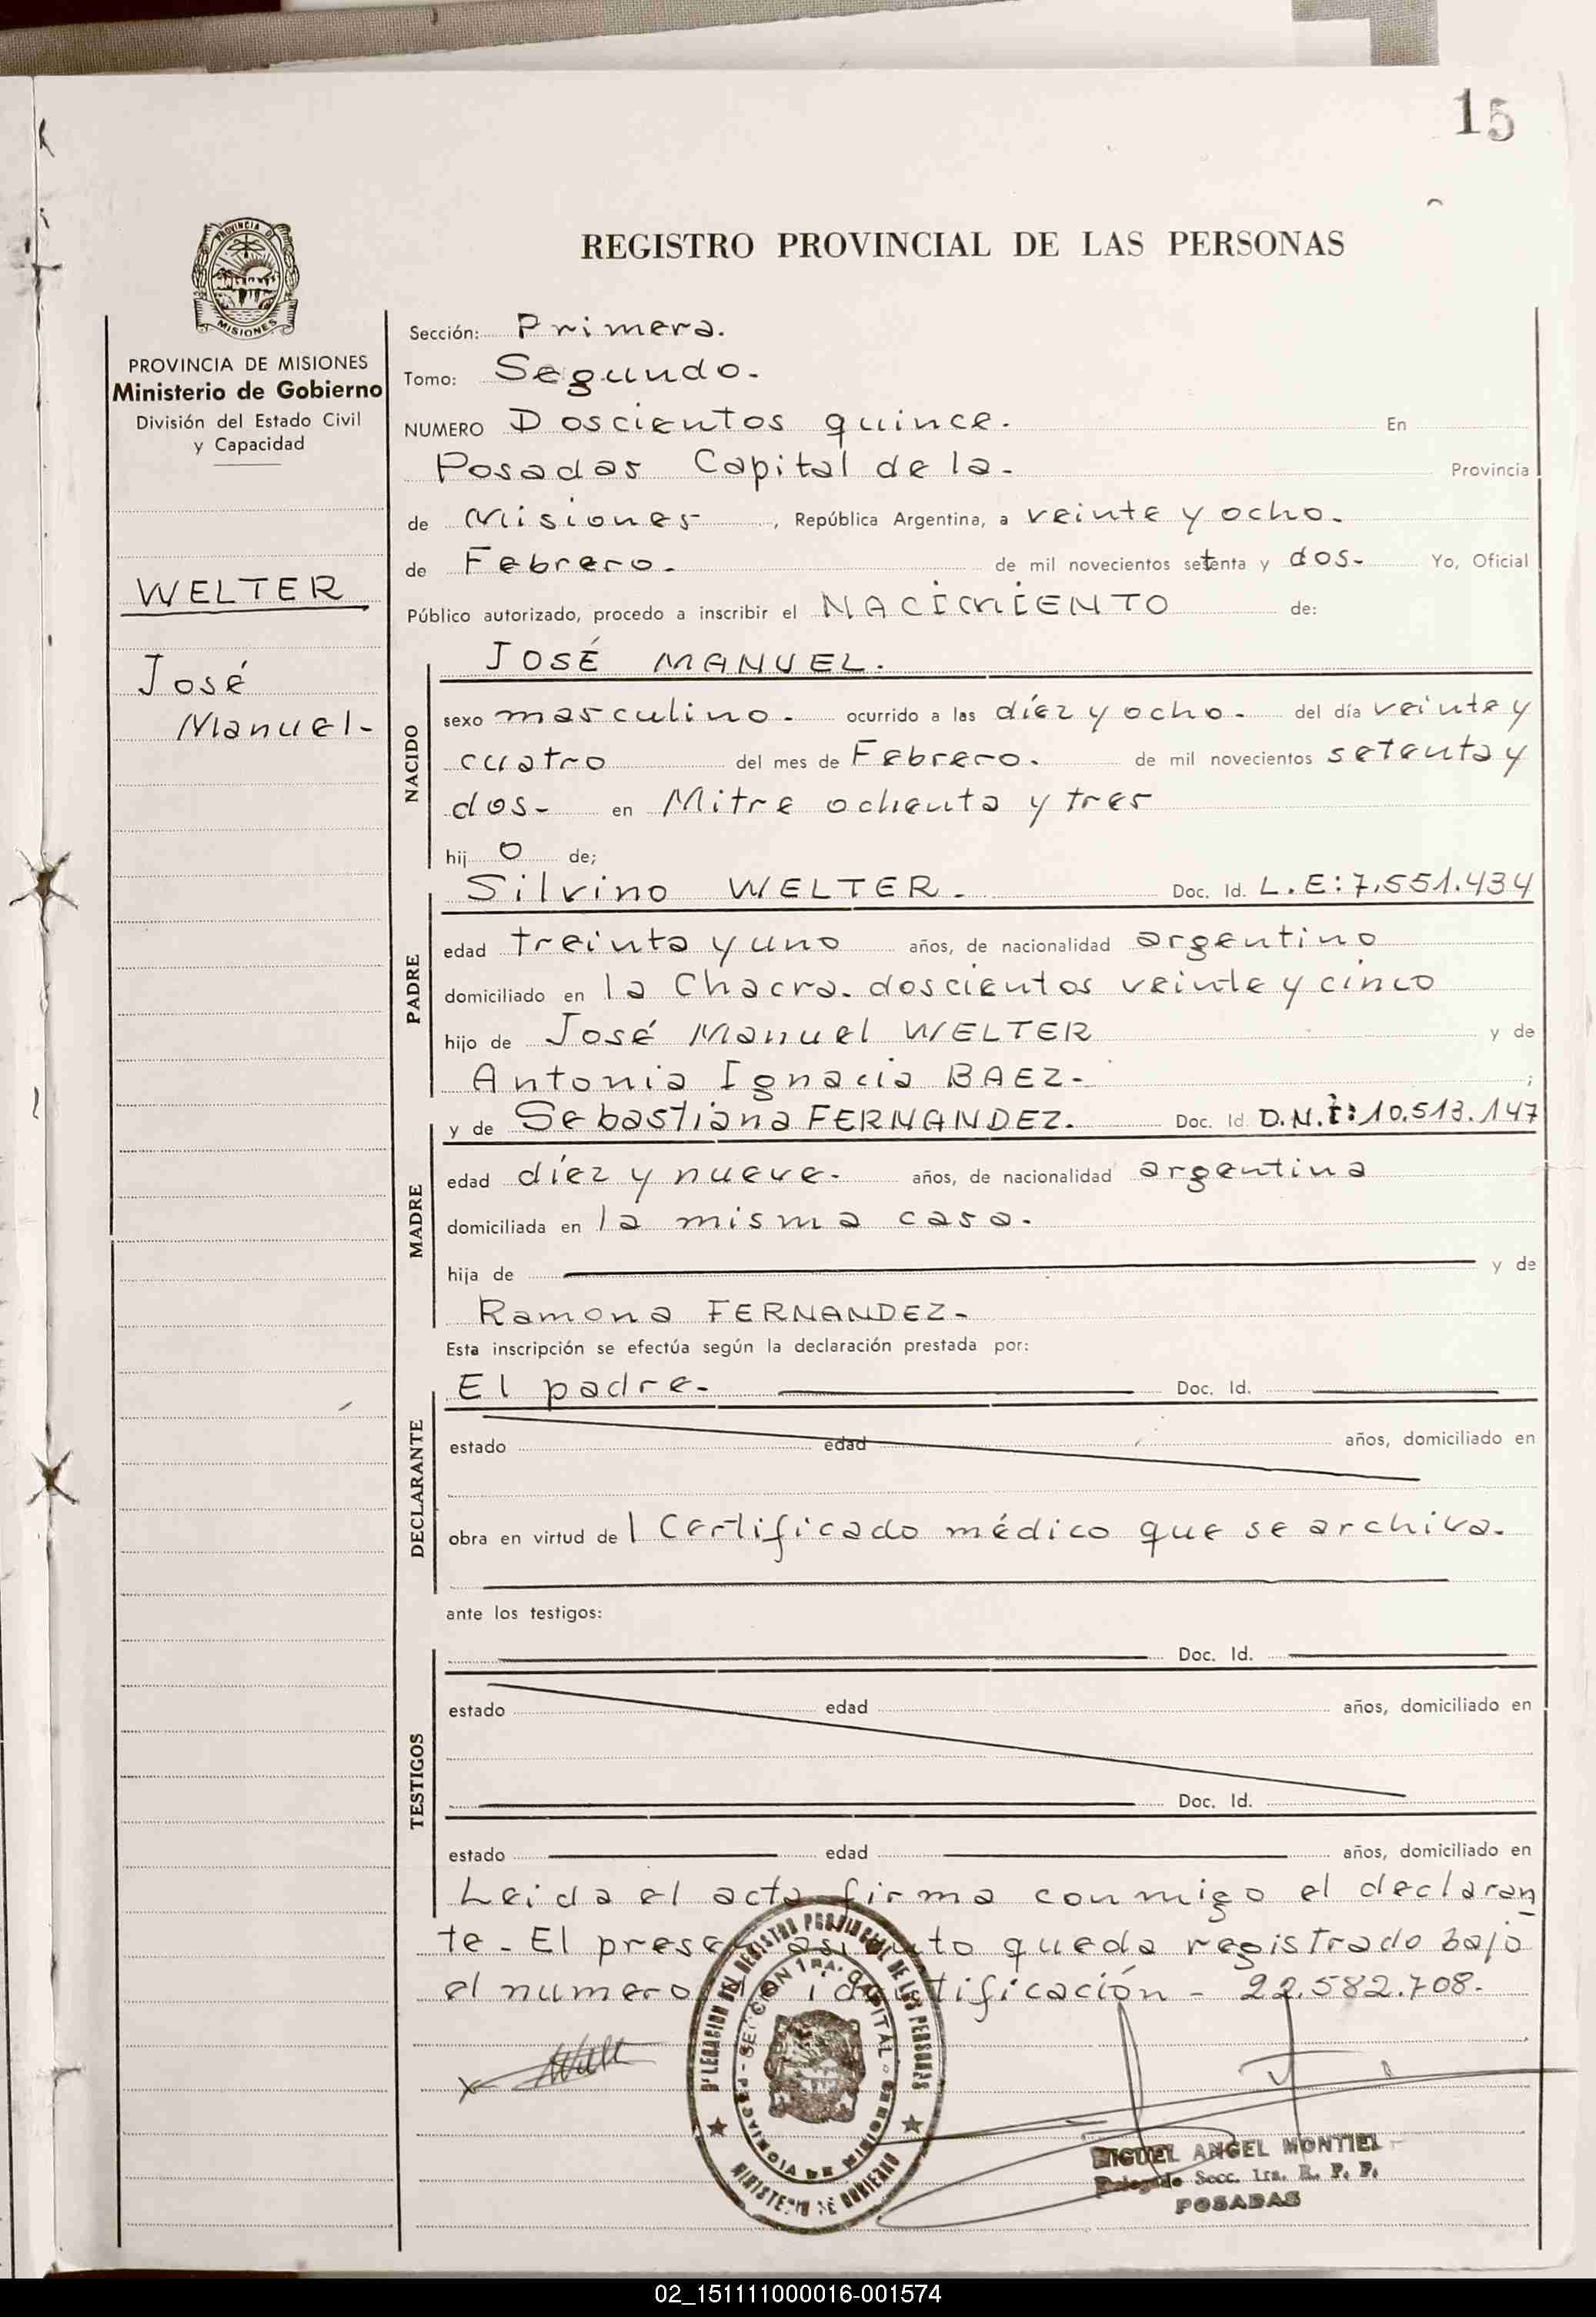 15
PROVINCIA DE
MISIONES
REGISTRO PROVINCIAL DE LAS PERSONAS
PROVINCIA DE MISIONES
Ministerio de Gobierno
División del Estado Civil
y Capacidad
WELTER
José
Manuel-
Sección: Primera.
Tomo: Segundo.
NUMERO Doscientos quince. En
Posadas Capital de la. Provincia
de Misiones, República Argentina, a veinte y ocho.
de Febrero. de mil novecientos setenta y dos. Yo, Oficial
Público autorizado, procedo a inscribir el NACIMIENTO de:
NACIDO
JOSÉ MANUEL.
sexo masculino. ocurrido a las diez y ocho. del día veinte y
cuatro del mes de Febrero. de mil novecientos setenta y
dos- en Mitre ochenta y tres
hij o de;
PADRE
Silvino WELTER. Doc. Id. L.E:7.551.434
edad treinta y uno años, de nacionalidad argentino
domiciliado en la Chacra. doscientos veinte y cinco
hijo de José Manuel WELTER y de
Antonia Ignacia BAEZ- ;
MADRE
y de Sebastiana FERNANDEZ. Doc. Id D.N.I:10.513.147
edad diez y nueve. años, de nacionalidad argentina
domiciliada en la misma casa.
hija de y de
Ramona FERNANDEZ-
Esta inscripción se efectúa según la declaración prestada por:
DECLARANTE
El padre. Doc. Id.
estado edad años, domiciliado en
obra en virtud de l Certificado médico que se archiva.
ante los testigos:
TESTIGOS
Doc. Id.
estado edad años, domiciliado en
Doc. Id.
estado edad años, domiciliado en
Leida el acta firma conmigo el declaran
te. El presente asiento queda registrado bajo
el numero identificación - 22.582.708.
DELEGACION DEL REGISTRO PROVINCIAL DE LAS PERSONAS
SECCION 1RA. CAPITAL
MINISTERIO DE GOBIERNO
MIGUEL ANGEL MONTIEL
Delegado Secc. 1ra. R. P. P.
POSADAS
02_151111000016-001574